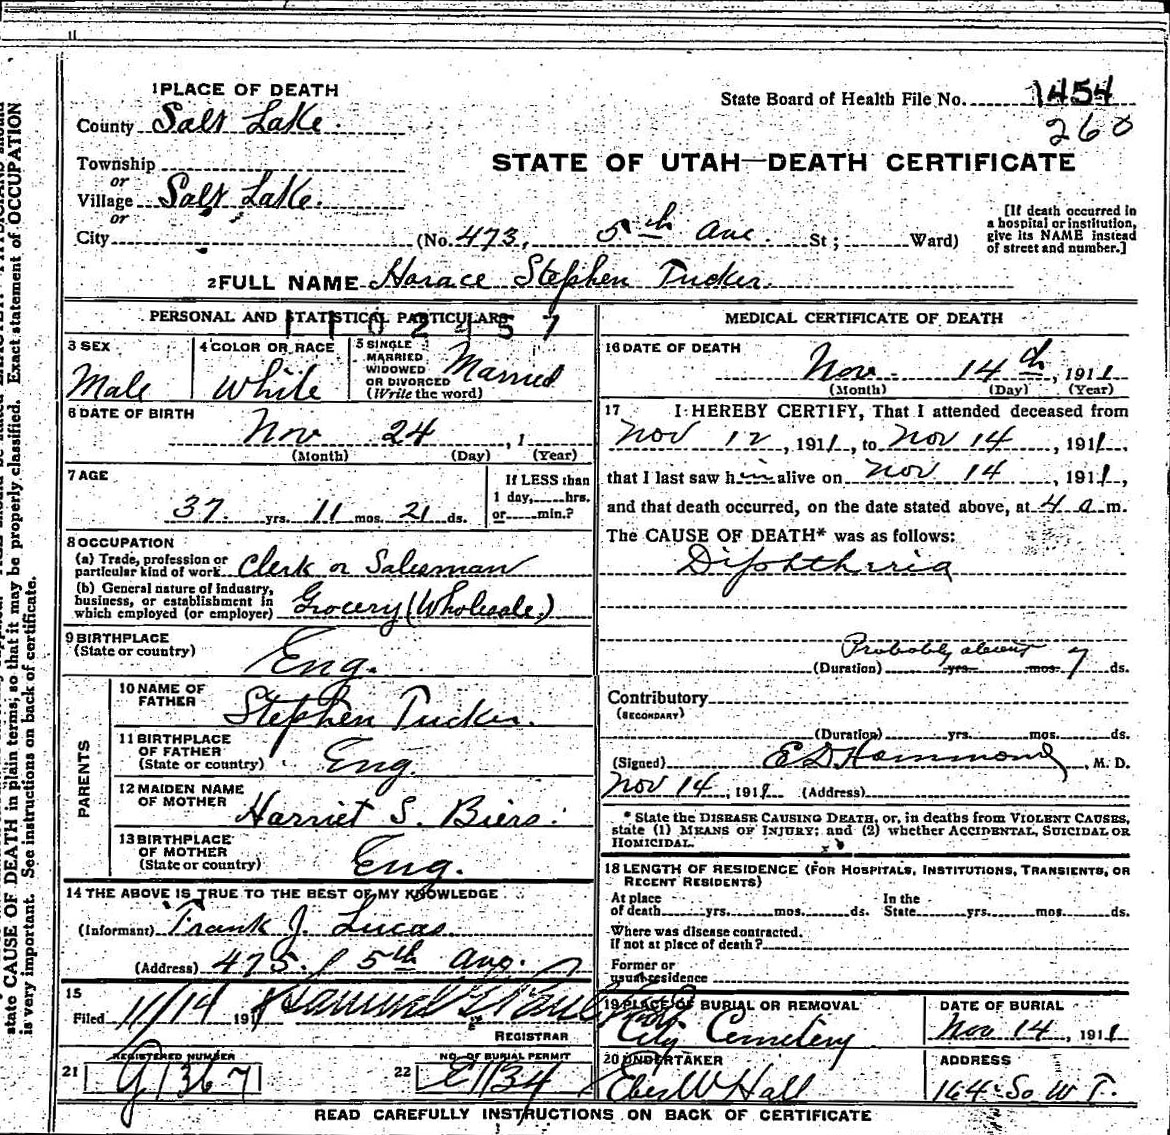 state CAUSE OF DEATH in plain terms, so that it may be properly classified. Exact statement of OCCUPATION
is very important. See instructions on back of certificate.
1 PLACE OF DEATH
State Board of Health File No. 1454
260
County Salt Lake.
STATE OF UTAH—DEATH CERTIFICATE
Township
or
Village Salt Lake.
or
City (No. 473, 5th Ave. St; Ward)
[If death occurred in
a hospital or institution,
give its NAME instead
of street and number.]
2 FULL NAME Horace Stephen Tucker.
PERSONAL AND STATISTICAL PARTICULARS
1102457
3 SEX
Male
4 COLOR OR RACE
White
5 SINGLE
MARRIED
WIDOWED
OR DIVORCED
(Write the word)
Married
6 DATE OF BIRTH
Nov 24, 1
(Month) (Day) (Year)
7 AGE
37 yrs. 11 mos. 21 ds.
If LESS than
1 day, hrs.
or min.?
8 OCCUPATION
(a) Trade, profession or
particular kind of work Clerk or Salesman
(b) General nature of industry,
business, or establishment in
which employed (or employer) Grocery (Wholesale.)
9 BIRTHPLACE
(State or country)
Eng.
PARENTS
10 NAME OF
FATHER
Stephen Tucker.
11 BIRTHPLACE
OF FATHER
(State or country)
Eng.
12 MAIDEN NAME
OF MOTHER
Harriet S. Biers.
13 BIRTHPLACE
OF MOTHER
(State or country)
Eng.
14 THE ABOVE IS TRUE TO THE BEST OF MY KNOWLEDGE
(Informant) Frank J. Lucas.
(Address) 475. 5th Ave.
15
Filed 11/14 191
REGISTRAR
21 REGISTERED NUMBER
G1367
22 NO. OF BURIAL PERMIT
E1134
MEDICAL CERTIFICATE OF DEATH
16 DATE OF DEATH
Nov. 14th, 1911
(Month) (Day) (Year)
17 I HEREBY CERTIFY, That I attended deceased from
Nov 12, 1911, to Nov 14, 1911.
that I last saw him alive on Nov 14, 1911,
and that death occurred, on the date stated above, at 4 a m.
The CAUSE OF DEATH* was as follows:
Diphtheria
Probably about
(Duration) yrs. mos. 7 ds.
Contributory
(SECONDARY)
(Duration) yrs. mos. ds.
(Signed) E D Hammond, M. D.
Nov 14, 1911 (Address)
* State the DISEASE CAUSING DEATH, or, in deaths from VIOLENT CAUSES,
state (1) MEANS OF INJURY; and (2) whether ACCIDENTAL, SUICIDAL OR
HOMICIDAL.
18 LENGTH OF RESIDENCE (FOR HOSPITALS, INSTITUTIONS, TRANSIENTS, OR
RECENT RESIDENTS)
At place
of death yrs. mos. ds.
In the
State yrs. mos. ds.
Where was disease contracted.
if not at place of death?
Former or
usual residence
19 PLACE OF BURIAL OR REMOVAL
City Cemetery
DATE OF BURIAL
Nov 14, 1911
20 UNDERTAKER
Eber W Hall
ADDRESS
164 So. W T.
READ CAREFULLY INSTRUCTIONS ON BACK OF CERTIFICATE